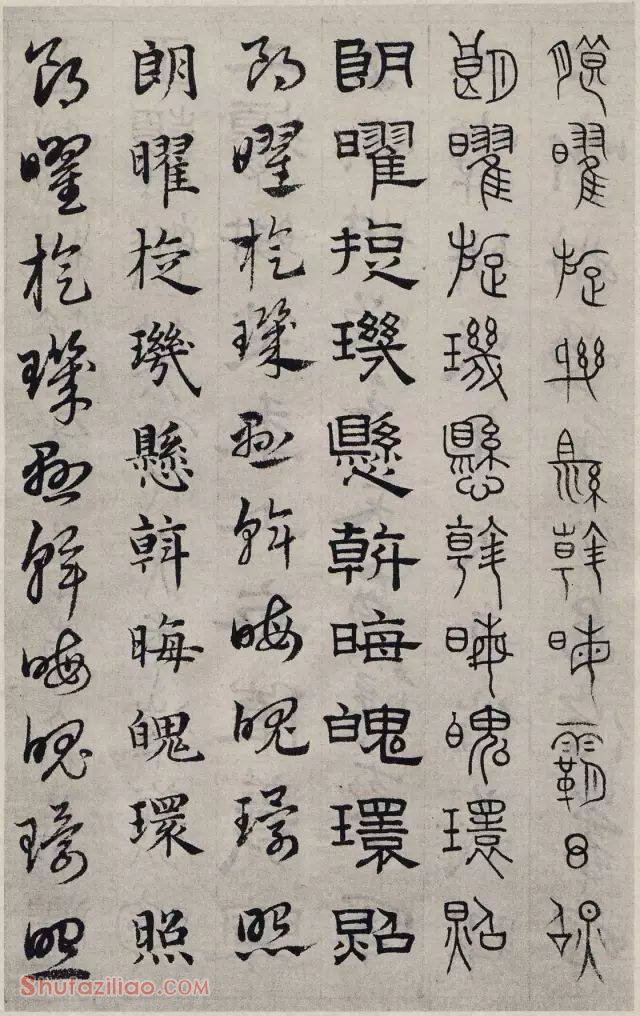 朖曜旋縣斡晦霸照
朗曜旋璣懸斡晦魄環照
朗曜旋璣懸斡晦魄環照
朗曜旋璣懸斡晦魄環照
朗曜旋璣懸斡晦魄環照
朗曜旋璣懸斡晦魄環照
Shufaziliao.com